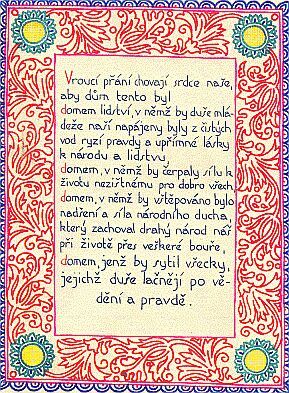 Vroucí přání chovají srdce naše,
aby dům tento byl
domem lidství, v němž by duše mlá-
deže naší napájeny byly z čistých
vod ryzí pravdy a upřímné lásky
k národu a lidstvu,
domem, v němž by čerpaly sílu k
životu nezištnému pro dobro všech,
domem, v němž by vštěpováno bylo
nadření a síla národního ducha,
který zachoval drahý národ náš
při životě přes veškeré bouře,
domem, jenž by sytil všecky,
jejichž duše lačnějí po vě-
dění a pravdě.